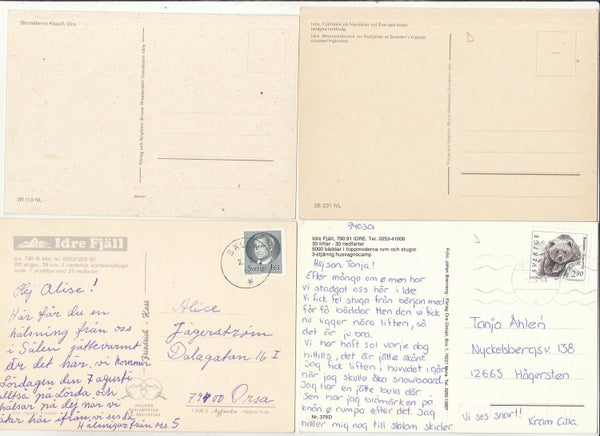 Storsätterns Kapell, Idre.
Förlag och färgfoto: Bruno Westerdahl Storsätern Idre
2B 119 NL
Idre. Fjällbäck på Nipfjället vid Sveriges högst
belägna landsväg.
2B 231 NL
Idre Fjäll
p.a. 790 91 Idre tel. 0253/203 50
Hej Alise!
Här får du en
hälsning från oss
i Sälen jättevarmt
är det här, vi kommer
Lördagen den 7 augusti
alltså på Lörda och
hälsar på dej när vi
åker här ifrån vi ses då
Hälsningar från oss 5
Friedrich - Kort
SÄL
Sverige 165
Alice
Jägerström
Dalagatan 16 I
79400 Orsa
940301
Idre Fjäll, 790 91 IDRE. Tel. 0253-41000
30 liftar - 30 nedfarter
5000 bäddar i toppmoderna rum och stugor
3-stjärnig husvagnscamp
Hejsan Tanja!
Efter många om ø men har
vi stadgat oss här i Idre
Vi fick fel stuga från början med
för få bäddar Men den vi fick
nu ligger nära liften, så
det är ju bra.
Vi har haft sol varje dag
hittills, det är jätte skönt.
Jag fick liften i huvudet igår
när jag skulle åka snowboard
Jag har en jätte bula där
Sen har jag blåmärken på
knän ø rumpa efter det. Jag
håller mig nog till slalom skidor
Nr. 379D
SVERIGE
2.90
Tanja Åhlén
Nyckelbergsv 138
12665 Hägersten
Vi ses snart!
Kram Cilla